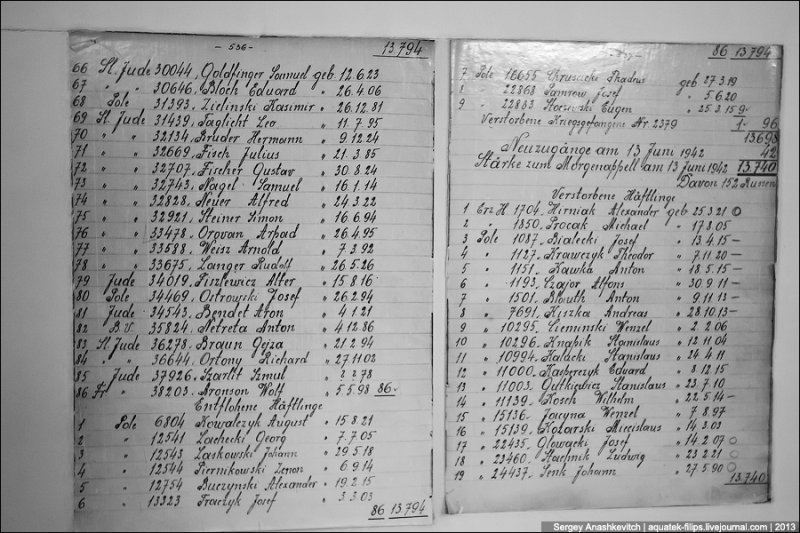 - 536 - 13.794
66 Sl. Jude 30044, Goldfinger Samuel geb. 12.6.23
67 " " 30646, Bloch Eduard " 26.4.06
68 Pole 31393, Zielinski Kasimir " 26.12.81
69 Sl. Jude 31439, Taglicht Leo " 11.7.95
70 " " 32134, Bruder Hermann " 9.12.24
71 " " 32669, Fisch Julius " 21.3.85
72 " " 32707, Fischer Gustav " 30.8.24
73 " " 32743, Nagel Samuel " 16.1.14
74 " " 32828, Neuer Alfred " 24.3.22
75 " " 32921, Steiner Simon " 16.6.94
76 " " 33478, Orovan Arpad " 26.4.95
77 " " 33588, Weisz Arnold " 7.3.92
78 " " 33675, Langer Rudolf " 26.5.26
79 Jude 34019, Fiszlewicz Alter " 15.8.16
80 Pole 34469, Ostrowski Josef " 26.2.94
81 Jude 34543, Bendet Aron " 4.1.21
82 B.V. 35824, Netreta Anton " 4.12.86
83 Sl. Jude 36278, Braun Gejza " 21.2.94
84 " " 36644, Ortony Richard " 27.11.02
85 Jude 37926, Szarlit Szmul " ?.?.78
86 Fr " 38203, Bronson Wolf " 5.5.98 86.-
Entflohene Häftlinge
1 Pole 6804 Kowalczyk August " 15.8.21
2 " 12541 Lachecki Georg " 7.7.05
3 " 12543 Laskowski Johann " 29.5.18
4 " 12544 Piernikowski Zenon " 6.9.14
5 " 12754 Buczynski Alexander " 19.2.15
6 " 13323 Fraczyk Josef " 3.3.03
86 13.794
86 13.794
7 Pole 16655 Chrusacki Thadeus geb 27.3.19
8 " 22868 Pamrow Josef " 5.6.20
9 " 22883 Stoczewski Eugen " 25.3.15 9.-
Verstorbene Kriegsgefangene Nr. 2379 1.- 96
13.698
Neuzugänge am 13 Juni 1942 42
Stärke zum Morgenappell am 13 Juni 1942 13.740
Davon 152 Russen
Verstorbene Häftlinge
1 Erz. H. 1704, Hirniak Alexander geb 25.3.21
2 " 1850, Procak Michael " 17.8.05
3 Pole 1087, Bialecki Josef " 13.4.15 -
4 " 1127, Krawczyk Theodor " 7.11.20 -
5 " 1151, Kawka Anton " 18.5.15 -
6 " 1193, Szajor Alfons " 30.9.11 -
7 " 1501, Blauth Anton " 9.11.13 -
8 " 7691, Kyszka Andreas " 28.10.13 -
9 " 10295, Cieminski Wenzel " 2.2.06
10 " 10296, Knapik Stanislaus " 12.11.04
11 " 10994, Kalacki Stanislaus " 24.4.11
12 " 11000, Kacperczyk Eduard " 8.12.15
13 " 11003, Gutkiewicz Stanislaus " 23.7.10
14 " 11139, Kosch Wilhelm " 22.5.14 -
15 " 15136, Jacyna Wenzel " 7.8.97
16 " 15139, Kozarski Miecislaus " 14.3.03
17 " 22435, Glowacki Josef " 14.2.07
18 " 23460, Stachnik Ludwig " 23.2.21
19 " 24437, Senk Johann " 27.5.90
13.740
Sergey Anashkevitch | aquatek-filips.livejournal.com | 2013